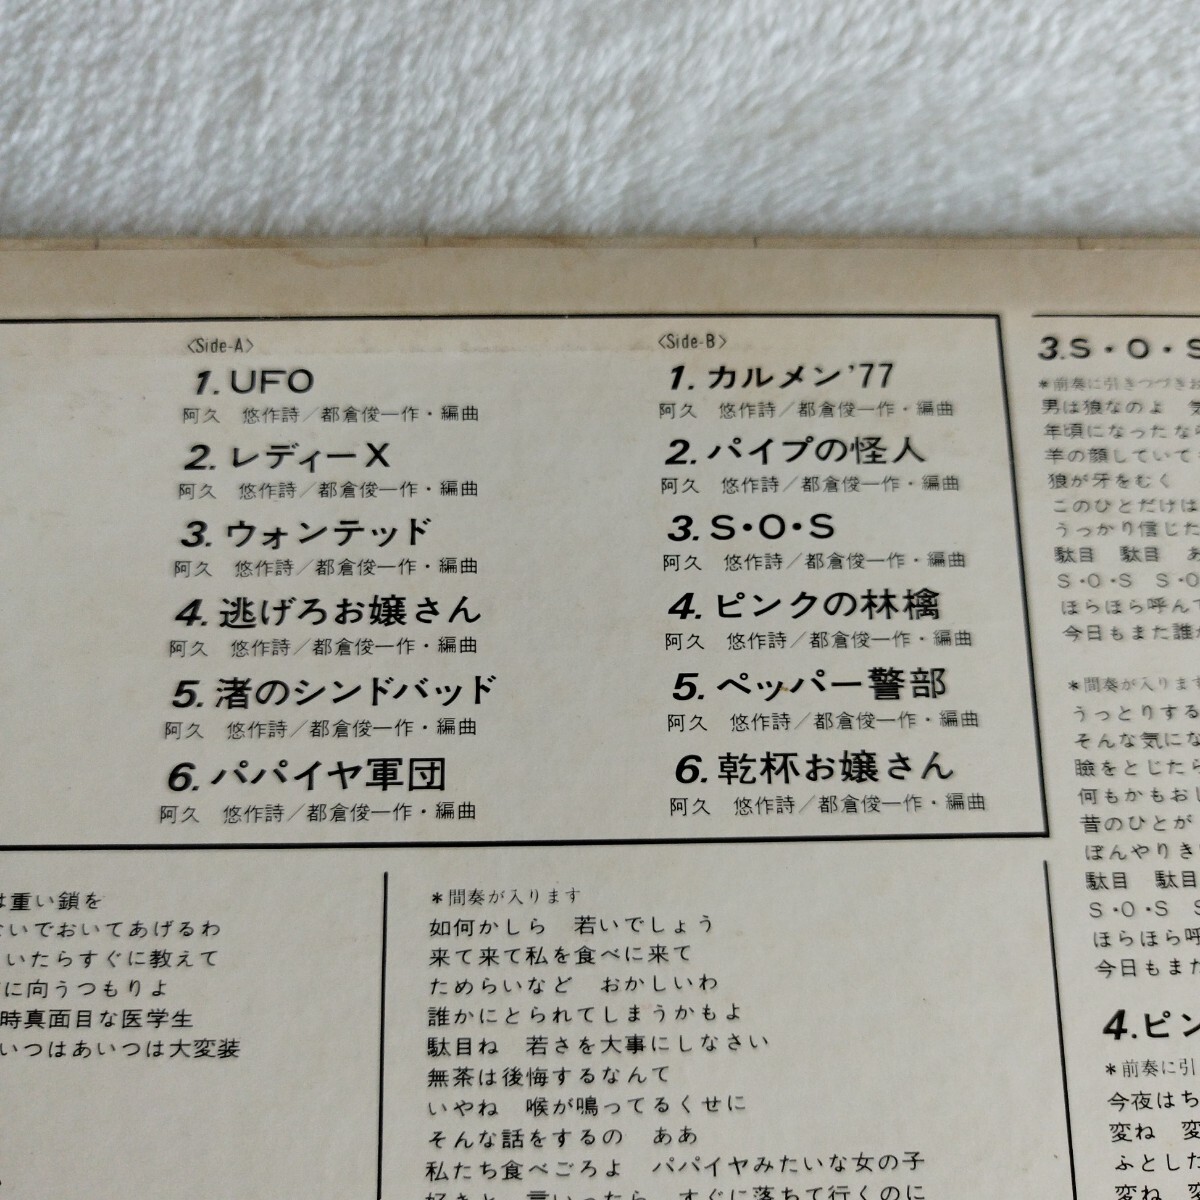 <Side-A>
1. UFO
阿久 悠作詩/都倉俊一作・編曲
2. レディーX
阿久 悠作詩/都倉俊一作・編曲
3. ウォンテッド
阿久 悠作詩/都倉俊一作・編曲
4. 逃げろお嬢さん
阿久 悠作詩/都倉俊一作・編曲
5. 渚のシンドバッド
阿久 悠作詩/都倉俊一作・編曲
6. パパイヤ軍団
阿久 悠作詩/都倉俊一作・編曲
<Side-B>
1. カルメン'77
阿久 悠作詩/都倉俊一作・編曲
2. パイプの怪人
阿久 悠作詩/都倉俊一作・編曲
3. S・O・S
阿久 悠作詩/都倉俊一作・編曲
4. ピンクの林檎
阿久 悠作詩/都倉俊一作・編曲
5. ペッパー警部
阿久 悠作詩/都倉俊一作・編曲
6. 乾杯お嬢さん
阿久 悠作詩/都倉俊一作・編曲
は重い鎖を
ないでおいてあげるわ
いたらすぐに教えて
に向うつもりよ
時真面目な医学生
いつはあいつは大変装
*間奏が入ります
如何かしら 若いでしょう
来て来て私を食べに来て
ためらいなど おかしいわ
誰かにとられてしまうかもよ
駄目ね 若さを大事にしなさい
無茶は後悔するなんて
いやね 喉が鳴ってるくせに
そんな話をするの ああ
私たち食べごろよ パパイヤみたいな女の子
好きと 言いったら すぐに落ちて行くのに
3.S・O・S
*前奏に引きつづきお
男は狼なのよ 気
年頃になったなら
羊の顔していても
狼が牙をむく
このひとだけは
うっかり信じた
駄目 駄目 あ
S・O・S S・O
ほらほら呼んで
今日もまた誰か
*間奏が入ります
うっとりする
そんな気にな
瞼をとじたら
何もかもおし
昔のひとが
ぼんやりき
駄目 駄目
S・O・S S
ほらほら呼
今日もまた
4.ピン
*前奏に引
今夜はち
変ね 変
ふとした
変ね 変